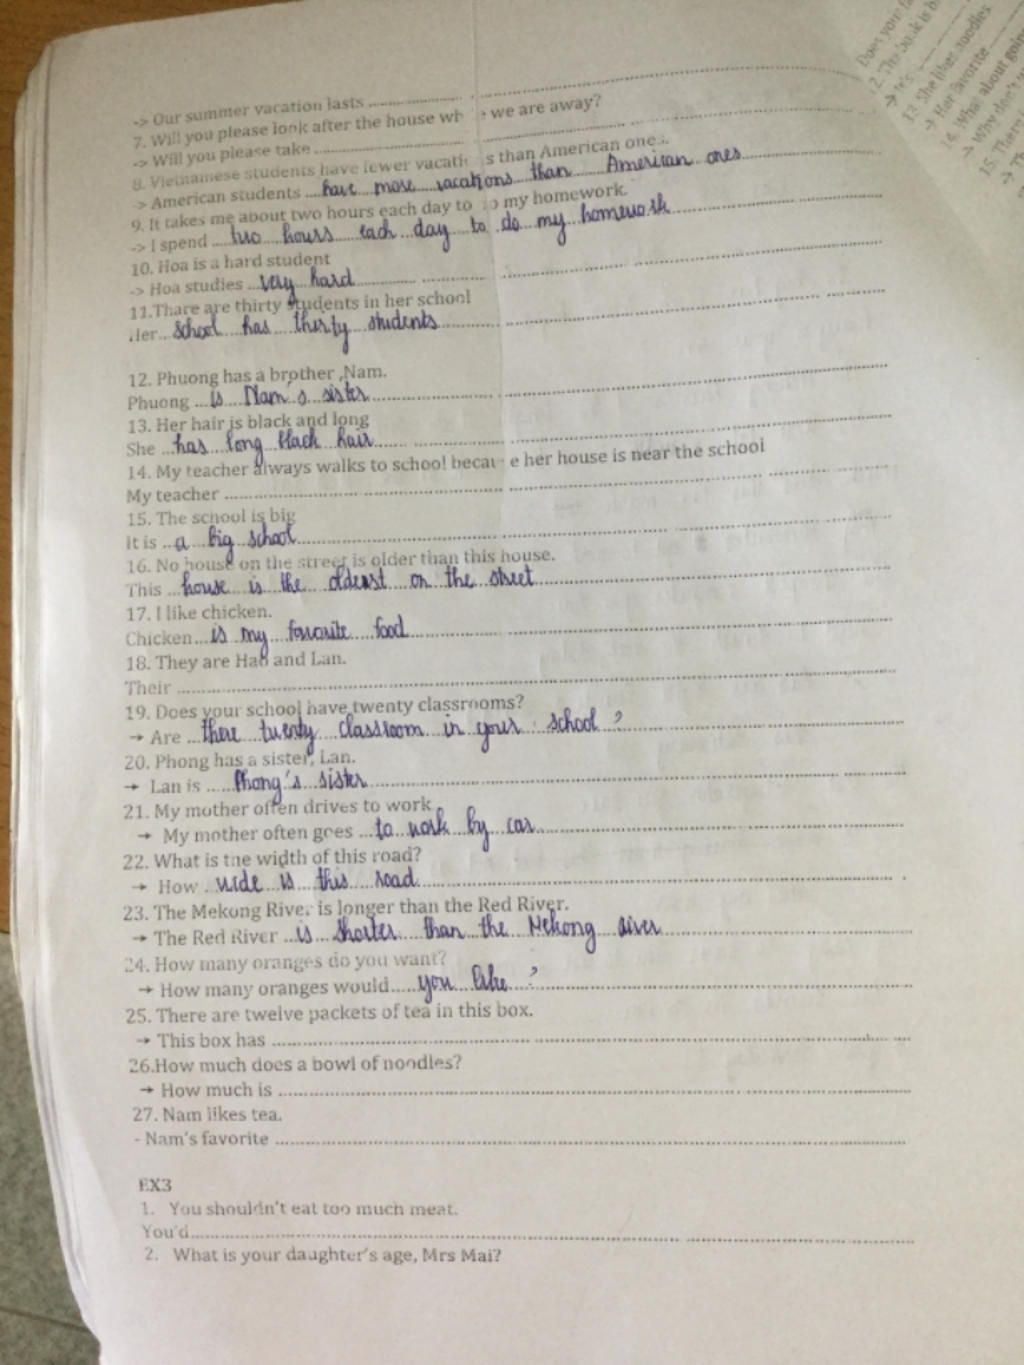 -> Our summer vacation lasts ........................
7. Will you please look after the house wh e we are away?
-> Will you please take ........................
8. Vietnamese students have fewer vacati s than American one..
-> American students ....have more vacations than American ones........
9. It takes me about two hours each day to o my homework.
-> I spend ...two hours each day to do my homework........
10. Hoa is a hard student
-> Hoa studies ...very hard........
11.Thare are thirty students in her school
Her...School has thirty students........
12. Phuong has a brother ,Nam.
Phuong ...is Nam's sister........
13. Her hair is black and long
She ...has long black hair........
14. My teacher always walks to school becau e her house is near the school
My teacher ........................
15. The school is big
It is ...a big school........
16. No house on the street is older than this house.
This ...house is the oldest on the street........
17. I like chicken.
Chicken...is my favorite food........
18. They are Hao and Lan.
Their ........................
19. Does your school have twenty classrooms?
→ Are ...there twenty classroom in your school ?........
20. Phong has a sister, Lan.
→ Lan is .....Phong's sister........
21. My mother often drives to work
→ My mother often goes ...to work by car........
22. What is the width of this road?
→ How ..wide is this road........
23. The Mekong River is longer than the Red River.
→ The Red River ...is shorter than the Mekong river........
24. How many oranges do you want?
→ How many oranges would.....you like ?........
25. There are twelve packets of tea in this box.
→ This box has ........................
26.How much does a bowl of noodles?
→ How much is ........................
27. Nam likes tea.
- Nam's favorite ........................
EX3
1. You shouldn't eat too much meat.
You'd........................
2. What is your daughter's age, Mrs Mai?
Does your
12. The book is
→ It's
13. She likes noodles.
→ Her favorite
14. What about going
→ Why don't
15. There
→ Th